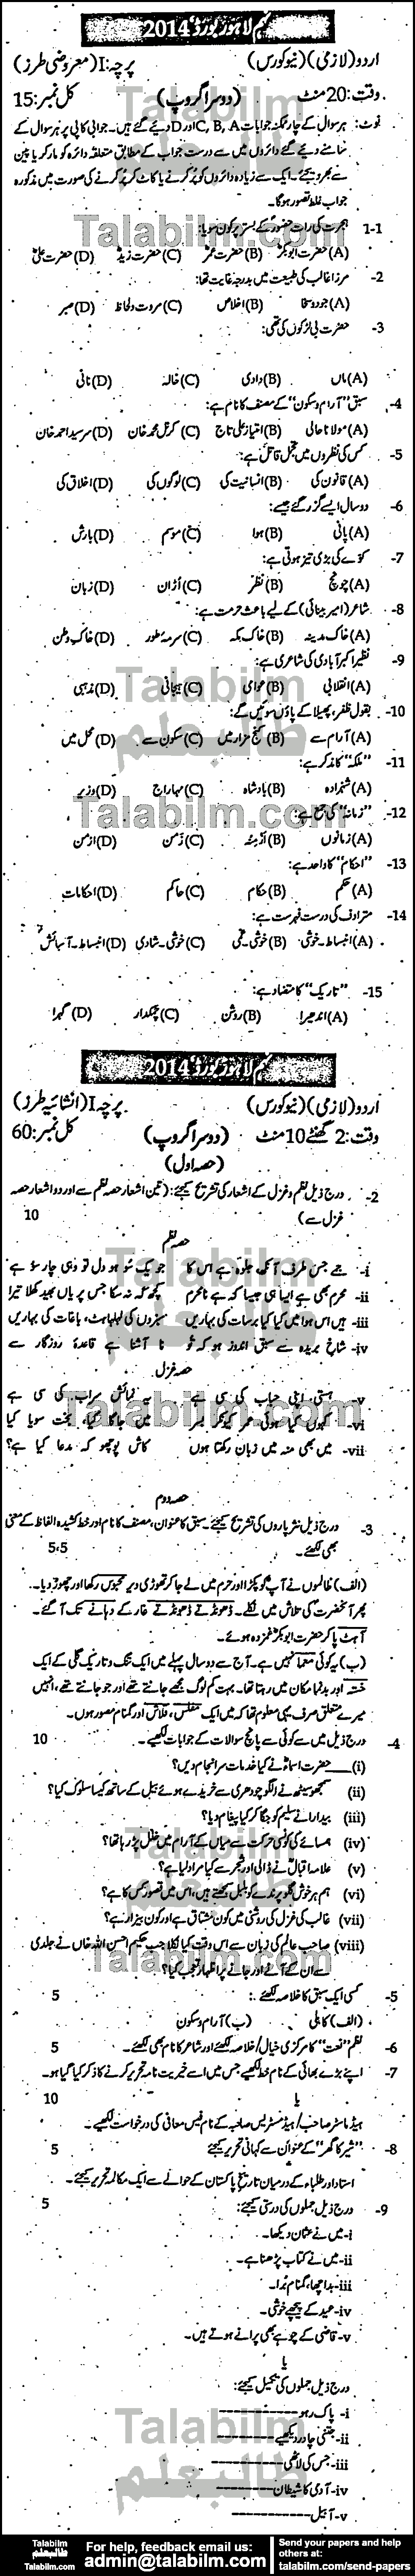 نہم لاہور بورڈ، 2014
اردو (لازمی) (نیو کورس) پرچہ: I (معروضی طرز)
وقت: 20 منٹ (دوسرا گروپ) کل نمبر: 15
نوٹ: ہر سوال کے چار ممکنہ جوابات C, B, A اور D دیئے گئے ہیں۔ جوابی کاپی پر ہر سوال کے
سامنے دیئے گئے دائروں میں سے درست جواب کے مطابق متعلقہ دائرہ کو مارکر یا پین
سے بھر دیجئے۔ ایک سے زیادہ دائروں کو پُر کرنے یا کاٹ کر پُر کرنے کی صورت میں مذکورہ
جواب غلط تصور ہوگا۔
1-1 ہجرت کی رات حضورؐ کے بستر پر کون سویا:
(A) حضرت ابوبکرؓ (B) حضرت عمرؓ (C) حضرت زیدؓ (D) حضرت علیؓ
2- مرزا غالب کی طبیعت میں بدرجہ غایت تھا:
(A) جود و سخا (B) اخلاص (C) مروت و لحاظ (D) صبر
3- حضرت بی لڑکوں کی تھی:
(A) ماں (B) دادی (C) خالہ (D) نانی
4- سبق "آرام و سکون" کے مصنف کا نام ہے:
(A) مولانا حالی (B) امتیاز علی تاج (C) کرنل محمد خان (D) سرسید احمد خان
5- کس کی نظروں میں قاتل ہے:
(A) قانون کی (B) انسانیت کی (C) لوگوں کی (D) اخلاق کی
6- دو سال ایسے گزر گئے جیسے:
(A) پانی (B) ہوا (C) موسم (D) بارش
7- کوّے کی بڑی تیز ہوتی ہے:
(A) چونچ (B) نظر (C) اُڑان (D) زبان
8- شاعر (امیر مینائی) کے لیے باعث حرمت ہے:
(A) خاک مدینہ (B) خاک مکہ (C) سرمۂ طور (D) خاک وطن
9- نظیر اکبر آبادی کی شاعری ہے:
(A) انقلابی (B) عوامی (C) ہیجانی (D) مذہبی
10- بقول ظفر، پھیلا کے پاؤں سوئیں گے:
(A) آرام سے (B) کنج مزار میں (C) سکون سے (D) محل میں
11- "ملکہ" کا مذکر ہے:
(A) شہزادہ (B) بادشاہ (C) مہاراج (D) وزیر
12- "زمانہ" کی جمع ہے:
(A) زمانوں (B) اَزمِنہ (C) زمن (D) ازمن
13- "احکام" کا واحد ہے:
(A) حکم (B) حکام (C) حاکم (D) احکامات
14- مترادف کی درست فہرست ہے:
(A) انبساط۔خوشی (B) خوشی۔غمی (C) خوشی۔شادی (D) انبساط۔آسائش
15- "تاریک" کا متضاد ہے:
(A) اندھیرا (B) روشن (C) چمکدار (D) گہرا
نہم لاہور بورڈ، 2014
اردو (لازمی) (نیو کورس) پرچہ I (انشائیہ طرز)
وقت: 2 گھنٹے 10 منٹ (دوسرا گروپ) کل نمبر: 60
(حصہ اول)
2- درج ذیل نظم و غزل کے اشعار کی تشریح کیجئے: (تین اشعار حصہ نظم سے اور دو اشعار حصہ
غزل سے) 10
حصہ نظم
i- جے جس طرف آنکھ جلوہ ہے اس کا جو یک سُو ہو دل تو وہی چار سو ہے
ii- محرم بھی ہے ایسا ہی جیسا کہ ہے نامحرم کچھ کہہ نہ سکا جس پر یاں بھید کھلا تیرا
iii- ہیں اس ہوا میں کیا کیا برسات کی بہاریں سبزوں کی لہلہاہٹ، باغات کی بہاریں
iv- شاخ بریدہ سے سبق اندوز ہو کہ تُو نا آشنا ہے قاعدۂ روزگار سے
حصہ غزل
v- ہستی اپنی حباب کی سی ہے یہ نمائش سراب کی سی ہے
vi- کہوں کیا ہوئی عمر کیونکر بسر میں جاگا کیا، بخت سویا کیا
vii- میں بھی منہ میں زبان رکھتا ہوں کاش پوچھو کہ مدعا کیا ہے؟
حصہ دوم
3- درج ذیل نثر پاروں کی تشریح کیجئے۔ سبق کا عنوان، مصنف کا نام اور خط کشیدہ الفاظ کے معنی
بھی لکھئے۔ 5،5
(الف) ظالموں نے آپؐ کو پکڑا اور حرم میں لے جا کر تھوڑی دیر محبوس رکھا اور چھوڑ دیا۔
پھر آنحضرتؐ کی تلاش میں نکلے۔ ڈھونڈتے ڈھونڈتے غار کے دہانے تک آ گئے۔
آہٹ پا کر حضرت ابوبکرؓ غمزدہ ہوئے۔
(ب) یہ کوئی معما نہیں ہے۔ آج سے دو سال پہلے میں ایک تنگ و تاریک گلی کے ایک
خستہ اور بدنما مکان میں رہتا تھا۔ بہت کم لوگ مجھے جانتے تھے اور جو جانتے تھے، انہیں
میرے متعلق صرف یہی معلوم تھا کہ میں ایک مفلس، قلاش اور گمنام مصور ہوں۔
4- درج ذیل میں سے کوئی سے پانچ سوالات کے جوابات لکھیے۔ 10
(i) حضرت اسماءؓ نے کیا خدمات سرانجام دیں؟
(ii) سمجھو سیٹھ نے الگو چودھری سے خریدے ہوئے بیل کے ساتھ کیسا سلوک کیا؟
(iii) بیدارا نے سلیم کو جگا کر کیا پیغام دیا؟
(iv) ہمسائے کی کونسی حرکت سے میاں کے آرام میں خلل پڑ رہا تھا؟
(v) علامہ اقبالؒ نے ڈالی اور شجر سے کیا مراد لیا ہے؟
(vi) ہم ہر خوش گلو پرندے کو بلبل سمجھتے ہیں، اس میں قصور کس کا ہے؟
(vii) غالب کی غزل کی روشنی میں کون مشتاق ہے اور کون بیزار ہے؟
(viii) صاحب عالم کی زبان سے اس وقت کیا نکلا جب حکیم احسن اللہ خاں نے جلدی
سے ان کے آنے اور جانے پر اظہار تعجب کیا؟
5- کسی ایک سبق کا خلاصہ لکھئے: 5
(الف) کاہلی (ب) آرام و سکون
6- نظم "نعت" کا مرکزی خیال / خلاصہ لکھئے اور شاعر کا نام بھی لکھئے۔ 5
7- اپنے بڑے بھائی کے نام خط لکھیے جس میں اسے خیریت نامہ تحریر کرنے کا ذکر کیا گیا ہو۔
یا 10
ہیڈ ماسٹر صاحب / ہیڈ مسٹریس صاحبہ کے نام فیس معافی کی درخواست لکھیے۔
8- "شیر کا گھر" کے عنوان سے کہانی تحریر کیجئے 5
یا
استاد اور طلباء کے درمیان تاریخ پاکستان کے حوالے سے ایک مکالمہ تحریر کیجئے۔
9- درج ذیل جملوں کی درستی کیجئے: 5
i- میں نے عثمان دیکھا۔
ii- میں نے کتاب پڑھنا ہے۔
iii- بد اچھا، گمنام بُرا۔
iv- عید کے پیچھے خوشی۔
v- قاضی کے چوہے بھی پرانے ہوتے ہیں۔
یا
درج ذیل جملوں کی تکمیل کیجئے:
i- پاک رہو ----------
ii- جتنی چادر دیکھیے ----------
iii- جس کی لاٹھی ----------
iv- آدمی کا شیطان ----------
v- آ بیل ----------
Talabilm.com
طالبعلم
Talabilm
طالبعلم
.com
For help, feedback email us:
admin@talabilm.com
Send your papers and help
others at:
talabilm.com/send-papers